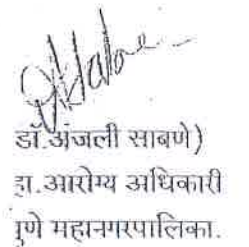 डॉ.अंजली साबणे)
हा.आरोग्य अधिकारी
पुणे महानगरपालिका.